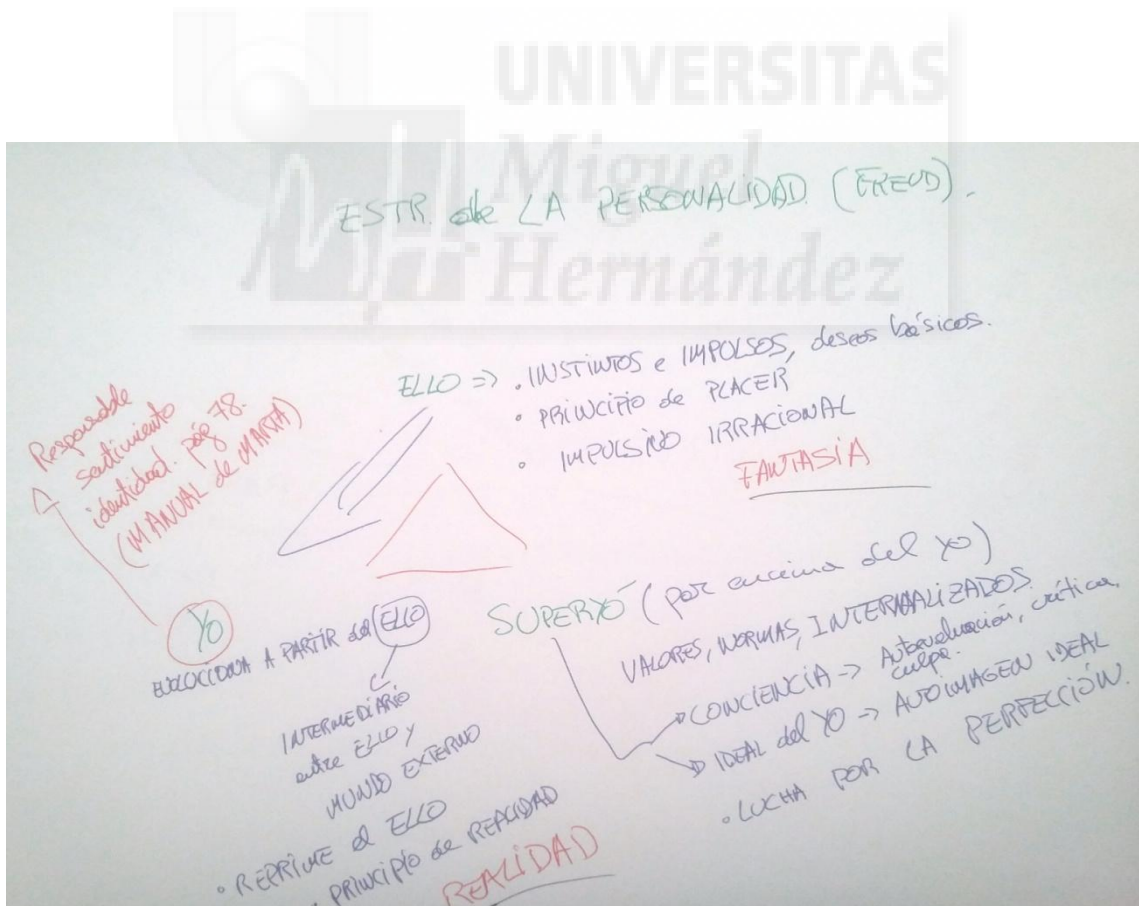 UNIVERSITAS
Miguel
Hernández
ESTR. de LA PERSONALIDAD (FREUD).
ELLO => . INSTINTOS e IMPULSOS, deseos básicos.
• PRINCIPIO de PLACER
• IMPULSIVO IRRACIONAL
FANTASÍA
Responsable
sentimiento
identidad. pág 78.
(MANUAL de MARTA)
YO
EVOLUCIONA A PARTIR del ELLO
INTERMEDIARIO
entre ELLO y
MUNDO EXTERNO
• REPRIME el ELLO
• PRINCIPIO de REALIDAD
REALIDAD
SUPERYO (por encima del YO)
VALORES, NORMAS, INTERNALIZADOS.
CONCIENCIA -> Autoevaluación, crítica,
culpa.
IDEAL del YO -> AUTOIMAGEN IDEAL
• LUCHA POR LA PERFECCIÓN.